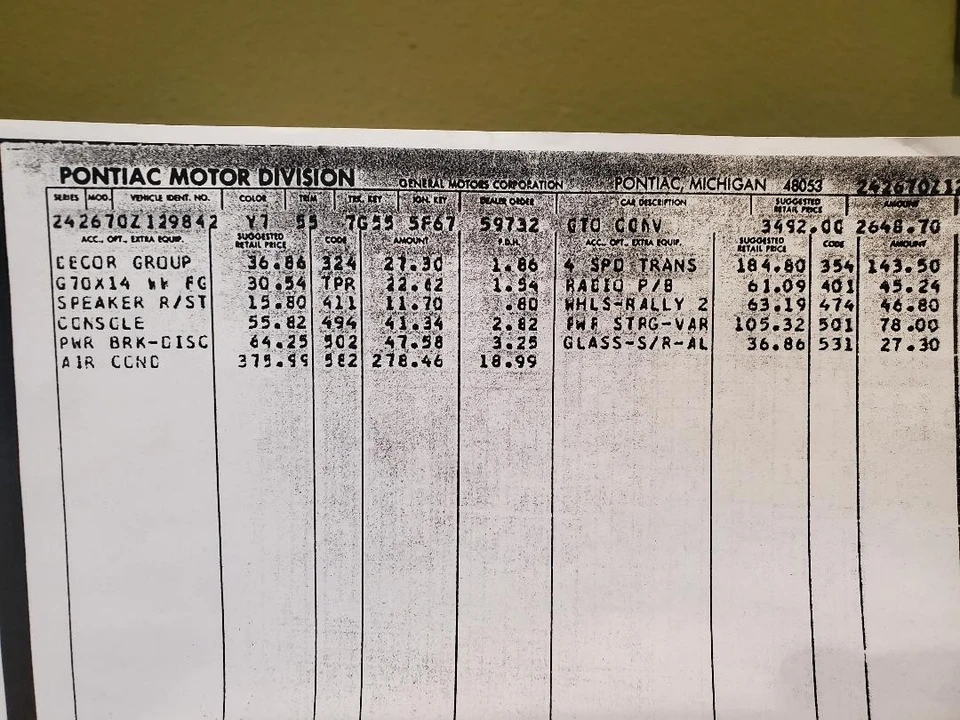 PONTIAC MOTOR DIVISION GENERAL MOTORS CORPORATION PONTIAC, MICHIGAN 48053 242670Z12
SERIES MOD. VEHICLE IDENT. NO. COLOR TRIM TRK. KEY IGN. KEY DEALER ORDER CAR DESCRIPTION SUGGESTED RETAIL PRICE AMOUNT
242670Z129842 Y7 55 7G55 5F67 59732 GTO CONV 3492.00 2648.70
ACC., OPT., EXTRA EQUIP. SUGGESTED RETAIL PRICE CODE AMOUNT P.D.H. ACC., OPT., EXTRA EQUIP. SUGGESTED RETAIL PRICE CODE AMOUNT
DECOR GROUP 36.86 324 27.30 1.86 4 SPD TRANS 184.80 354 143.50
G70X14 WW FG 30.54 TPR 22.62 1.54 RADIO P/B 61.09 401 45.24
SPEAKER R/ST 15.80 411 11.70 .80 WHLS-RALLY 2 63.19 474 46.80
CONSOLE 55.82 494 41.34 2.82 PWR STRG-VAR 105.32 501 78.00
PWR BRK-DISC 64.25 502 47.58 3.25 GLASS-S/R-AL 36.86 531 27.30
AIR COND 375.99 582 278.46 18.99